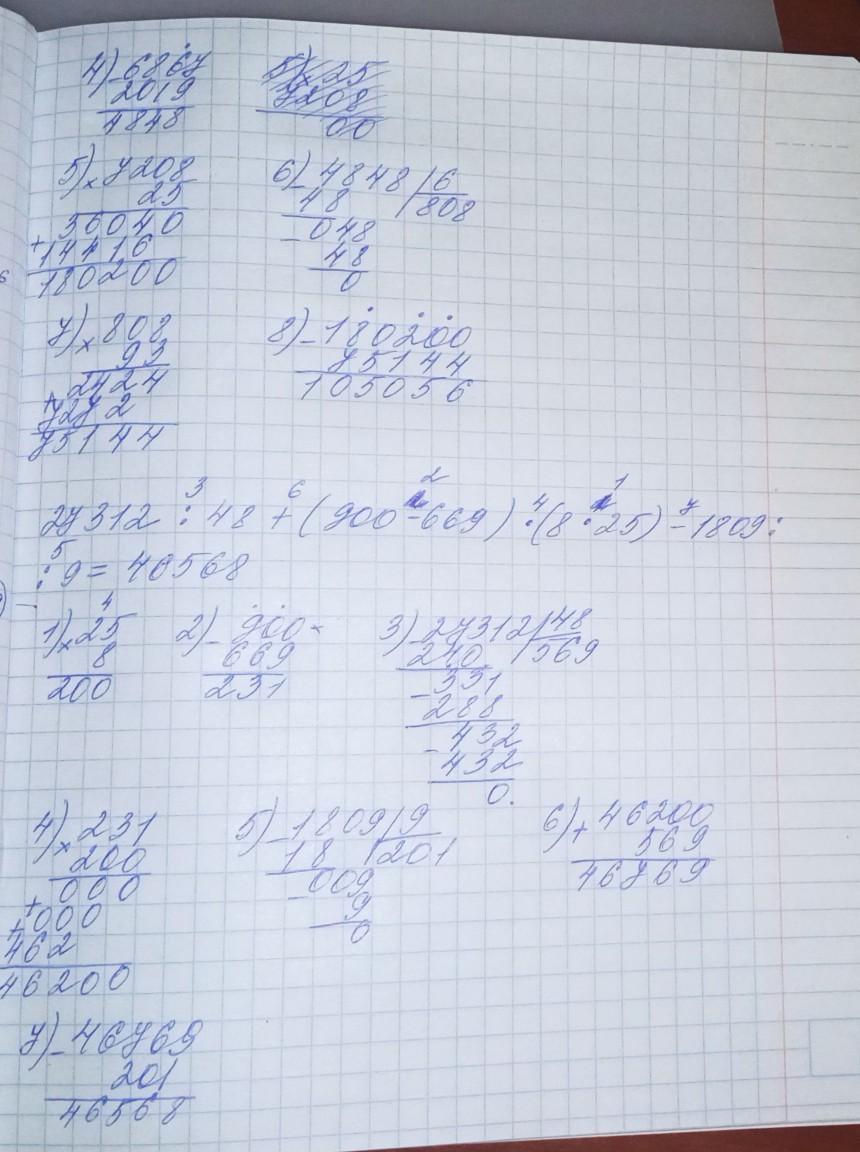 4) - 6867
2019
4848
5) x 25
7208
00
5) x 7208
25
+ 36040
14416
180200
6) - 4848 | 6
48 | 808
- 048
48
0
7) x 808
93
+ 2424
7272
75144
8) - 180200
75144
105056
3 6 2 4 1 7
27312 : 48 + (900 - 669) · (8 · 25) - 1809 :
5
: 9 = 40568
4
1) x 25
8
200
2) - 900
669
231
3) - 27312 | 48
240 | 569
- 331
288
- 432
432
0.
4) x 231
200
+ 000
+ 000
462
46200
5) - 1809 | 9
18 | 201
- 009
9
0
6) + 46200
569
46769
7) - 46769
201
46568